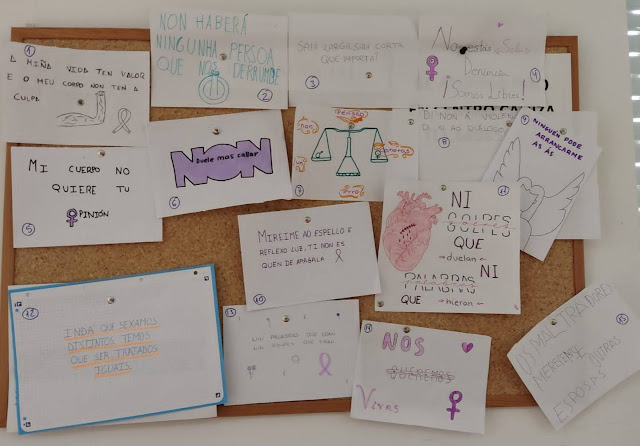 1
A MIÑA VIDA TEN VALOR
E O MEU CORPO NON TEN A
CULPA
NON HABERÁ
NINGUNHA PERSOA
QUE NOS DERRUMBE
2
SAIA LARGA, SAIA CORTA
QUE IMPORTA!
3
No estás Sola
Denuncia
¡Somos Libres!
4
MI CUERPO NO
QUIERE TU
OPINIÓN
5
NON
Duele mas callar
6
7
8
DI NON Á VIOLENCIA
DI SI AO DIÁLOGO
9
NINGUÉN PODE
ARRANCARME
AS ÁS
MIREIME AO ESPELLO E
REFLEXO LUZ, TI NON ES
QUEN DE APAGALA
10
11
NI
GOLPES
QUE
duelan
NI
PALABRAS
QUE
hieran
12
INDA QUE SEXAMOS
DISTINTOS TEMOS
QUE SER TRATADOS
IGUAIS.
13
14
NOS
QUEREMOS
Vivas
15
OS MALTRATADORES
NON